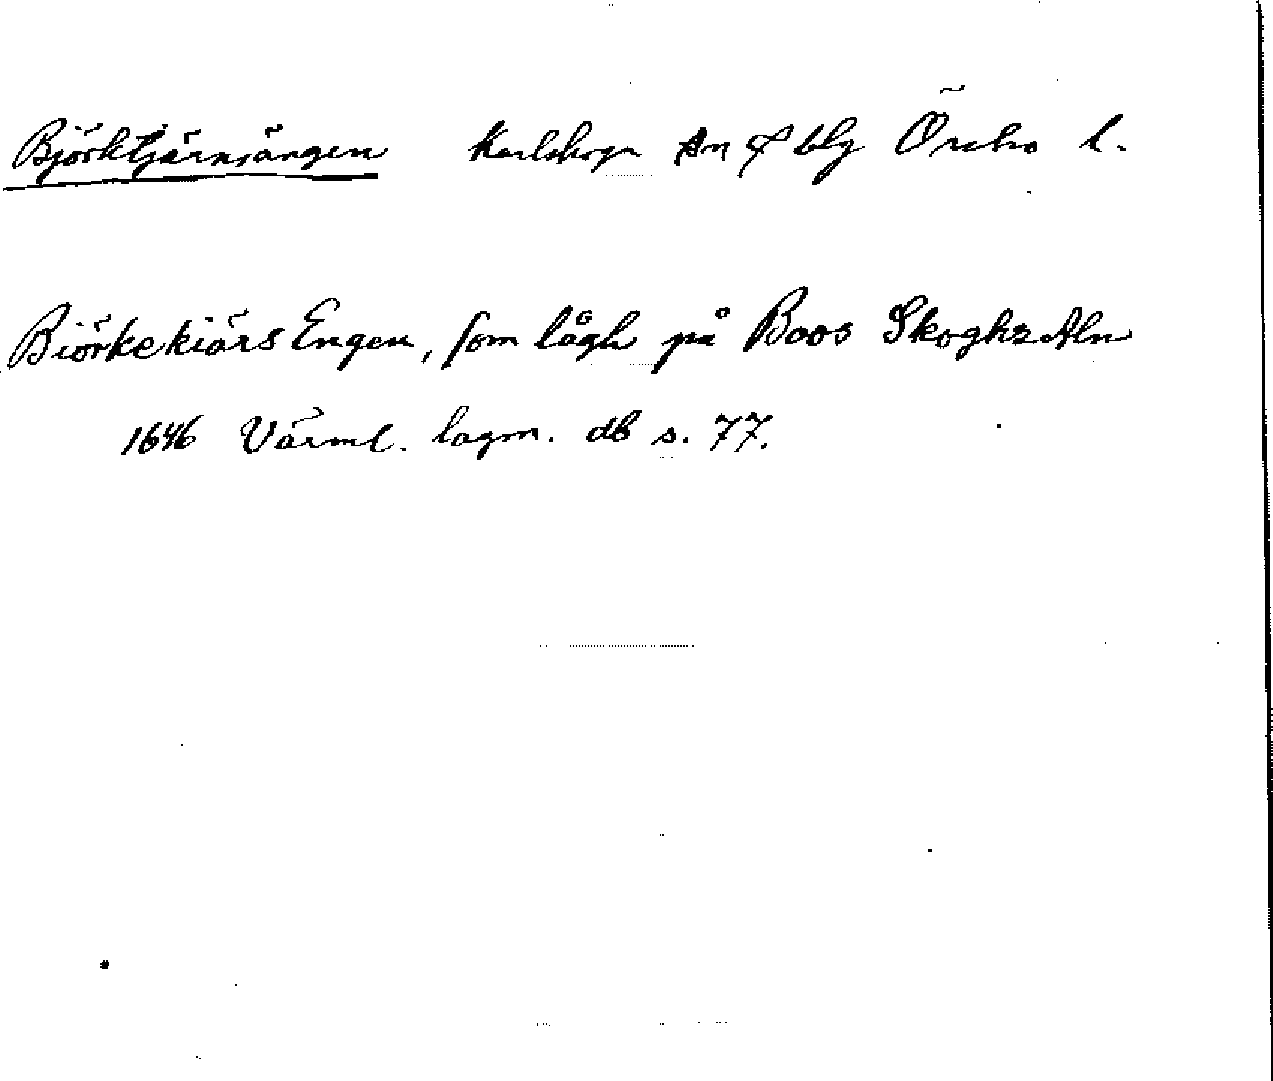 Björktjärnsängen Karlskoga sn o blg Örebro l.
Biörkekiärs Engen, som lågh på Boos Skoghz Aln
1646 Värml. lagm. db s. 77.